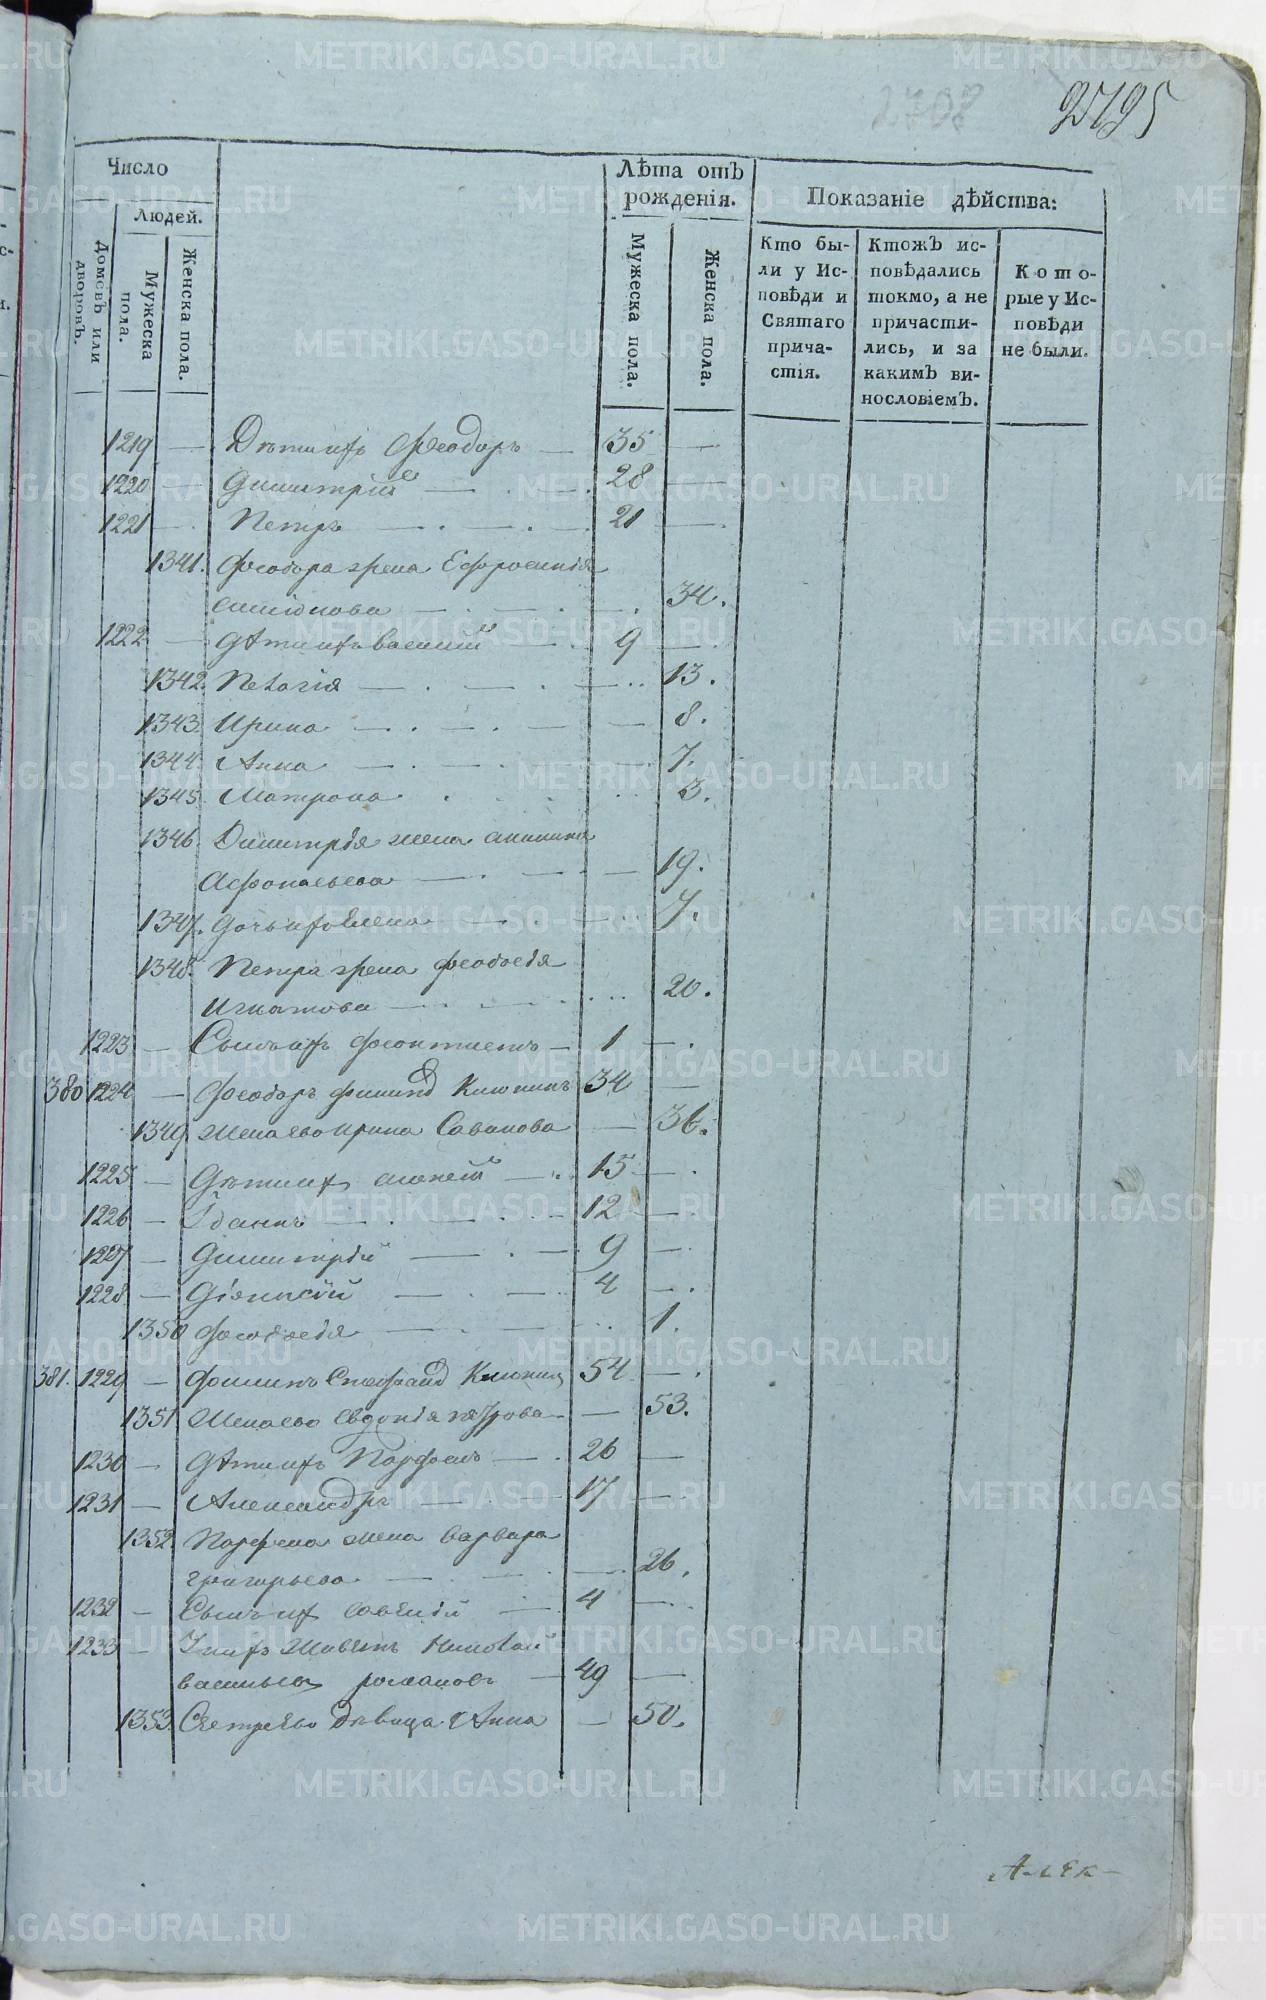 2795
Число
Людей.
Домовъ или дворовъ.
Мужеска пола.
Женска пола.
Лѣта отъ рожденія.
Мужеска пола.
Женска пола.
Показаніе дѣйства:
Кто были у Исповѣди и Святаго причастія.
Ктожъ исповѣдались токмо, а не причастились, и за какимъ винословіемъ.
Которые у Исповѣди не были.
1219 — Дѣти ихъ Феодоръ — 35 —
1220 — Димитрій — 28 —
1221 — Петръ — 21 —
1341. Феодора жена Ефросинія
34.
1222 — Дѣти ихъ Василій — 9 —
1342. Пелагія — 13.
1343. Ирина — 8.
1344. Анна — 7.
1345. Матрона 3.
1346. Димитрія жена
Афонасьева — 19.
1347. Дочь ихъ Елена — 7.
1348. Петра жена Феодосія
Игнатова — 20.
1223 — Сынъ ихъ Феоктистъ — 1 —
380 1224 — Феодоръ Клюкинъ 34 —
1349. Жена его Ирина Савинова — 36.
1225 — Дѣти ихъ Алексѣй — 15 —
1226 — Іоаннъ — 12 —
1227 — Димитрій — 9 —
1228 — Діонисій — 4 —
1350 Феодосія — 1.
381. 1229 — Филипъ Клюкинъ 54 —
1351 Жена его Евдокія Петрова — 53.
1230 — Дѣти ихъ Парфенъ — 26 —
1231 — Александръ — 17 —
1352. Парфена жена Варвара
Григорьева — 26.
1232 — Сынъ их Савелій — 4 —
1233 — У нихъ Николай
Васильевъ Романовъ — 49 —
1353. Сестра Его дѣвица Анна — 50.
Алек-
METRIKI.GASO-URAL.RU